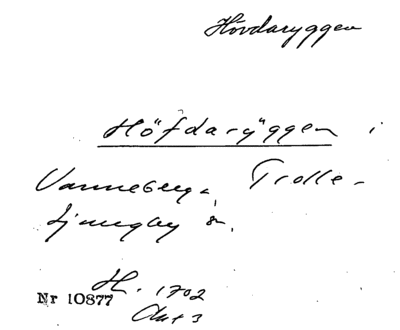 Hövdaryggen
Höfdaryggen i
Vanneberga, Trolle-
ljungby sn.
H. 1702
Nr 10877
Akt 3